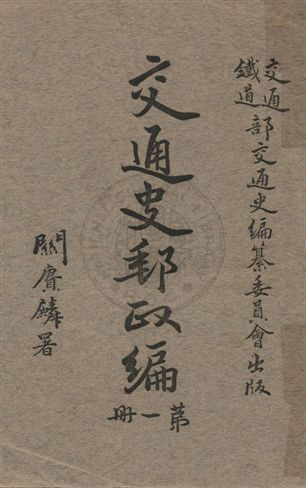 交通
鐵道
部交通史編纂委員會出版
交通史郵政編
第一冊
關賡麟署